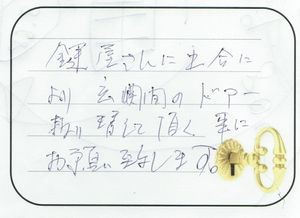 鍵屋さんに立合に
より玄関間のドアー
を開けて頂く事に
お願い致します。